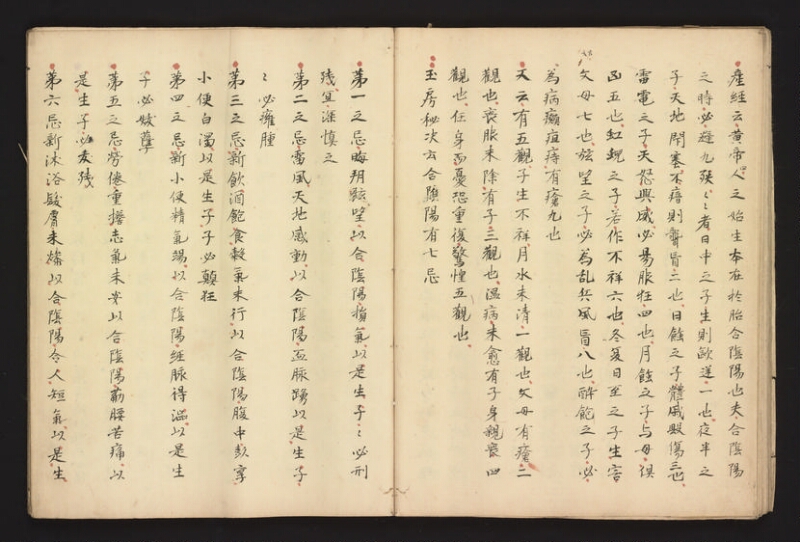 産經云黄帝曰人之始生本在於胎合陰陽也夫合陰陽
之時必避九殃〻者日中之子生則歐逆一也夜半之
子天地閇塞不瘖則聾盲二也日蝕之子體戚毀傷三也
雷電之子天怒興威必易服狂四也月蝕之子与母俱
凶五也虹蜺之子若作不祥六也冬夏日至之子生害
父母七也弦望之子必為乱兵風盲八也醉飽之子必
為病癲疽痔有瘡九也
又云有五觀子生不祥月水未清一觀也父母有瘡二
觀也喪服未除有子三觀也温病未愈有子身親喪四
觀也任身而憂恐重復驚惶五觀也
玉房秘決云合陰陽有七忌
第一之忌晦朔弦望以合陰陽損氣以是生子〻必刑
残宜深慎之
第二之忌雷風天地感動以合陰陽血脉踴以是生子
〻必癰腫
第三之忌新飲酒飽食穀氣未行以合陰陽腹中彭享
小便白濁以是生子子必顛狂
第四之忌新小便精氣竭以合陰陽經脉得澁以是生
子必妖孽
第五之忌勞倦重擔志氣未安以合陰陽筋腰苦痛以
是生子必夭残
第六忌新沐浴髮膚未燥以合陰陽令人短氣以是生